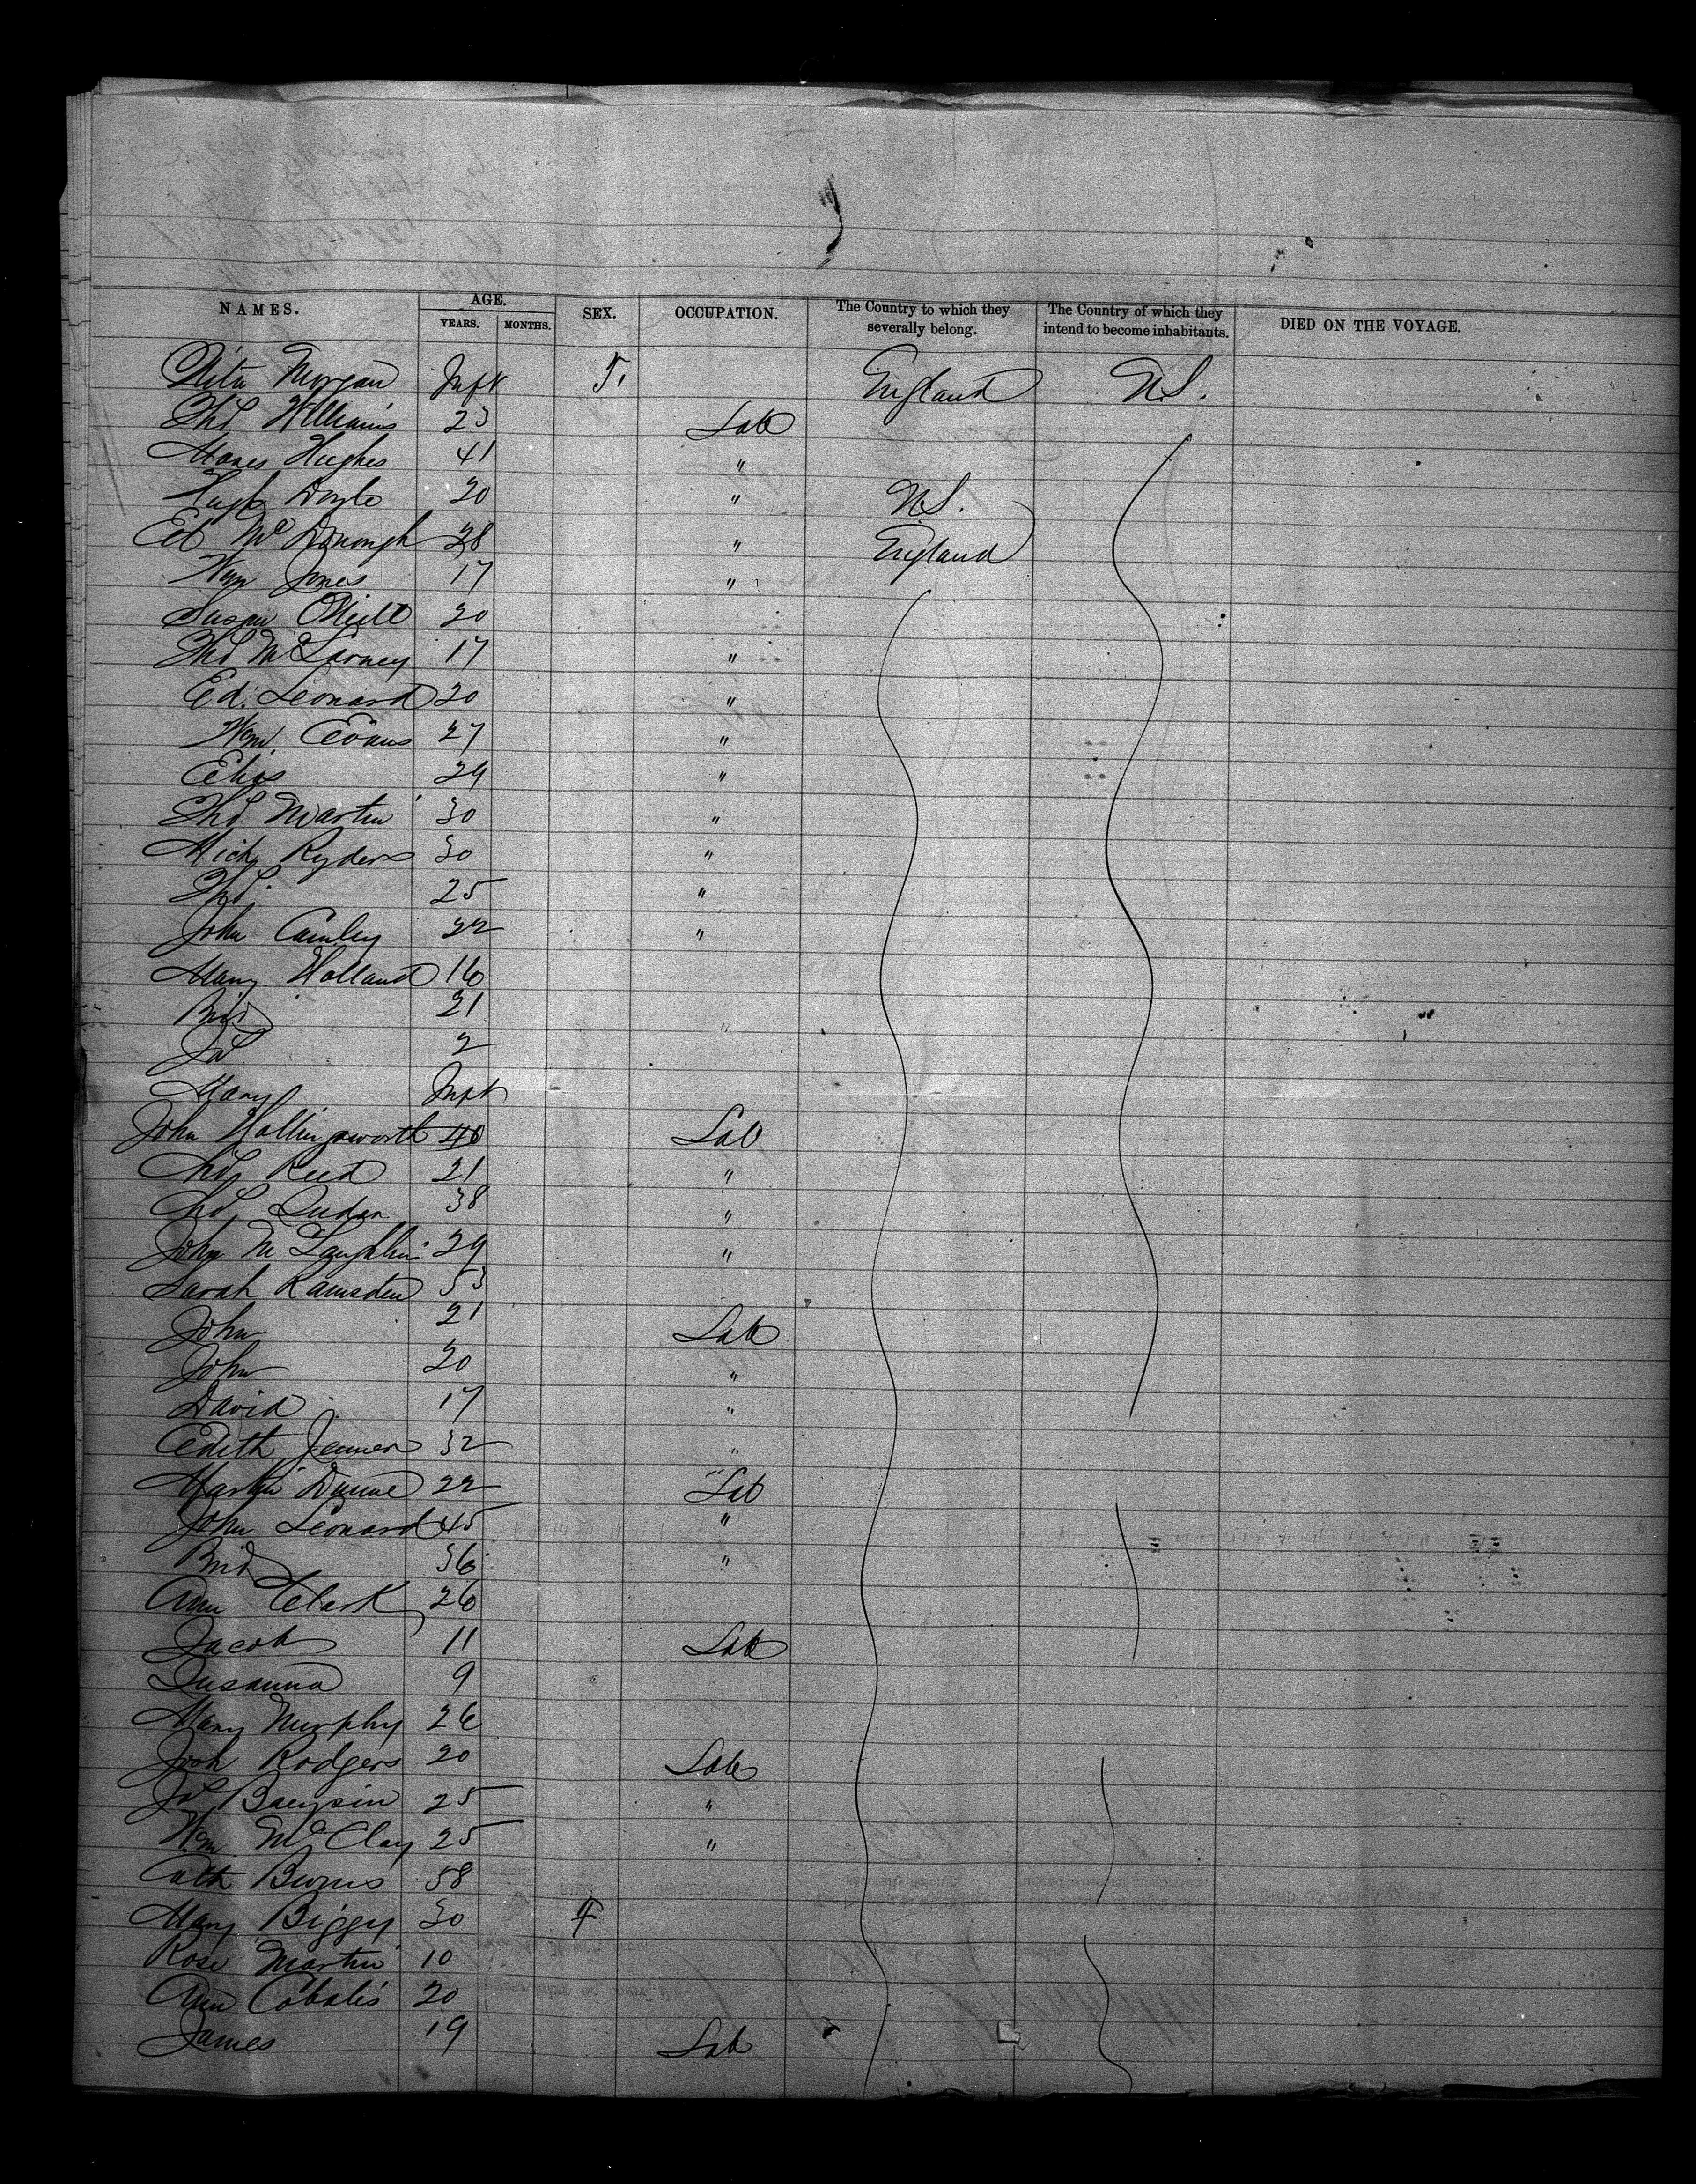 NAMES. AGE. SEX. OCCUPATION. The Country to which they severally belong. The Country of which they intend to become inhabitants. DIED ON THE VOYAGE.
YEARS. MONTHS.
Morgan Inft F. England U.S.
Thos Williams 23 Lab
Moses Hughes 41 "
Hugh Doyle 20 " U.S.
Ed McDonough 28 " England
Wm Jones 17 "
Susan ONeill 20
Thos McLarney 17 "
Ed. Leonard 20 "
Wm. Evans 27 "
Elias 29 "
Thos Martin 30 "
Mich Ryder 30 "
Thos. 25 "
John Cauley 22 "
Mary Holland 16
Brid 21
Jas 2
Mary Inft
John Hollingsworth 40 Lab
Thos Reed 21 "
Thos 38 "
John McLaughlin 29 "
Sarah Ramsden 53
John 21 Lab
John 20 "
David 17 "
Edith Jenner 32 "
Martin Dunne 22 Lab
John Leonard 45 "
Brid 36 "
Ann Clark 26
Jacob 11 Lab
Susanna 9
Mary Murphy 26
Josh Rodgers 20 Lab
Jas 25 "
Wm McClay 25 "
Cath Burns 58
Mary Biggy 30 F
Rose Martin 10
Ann 20
James 19 Lab